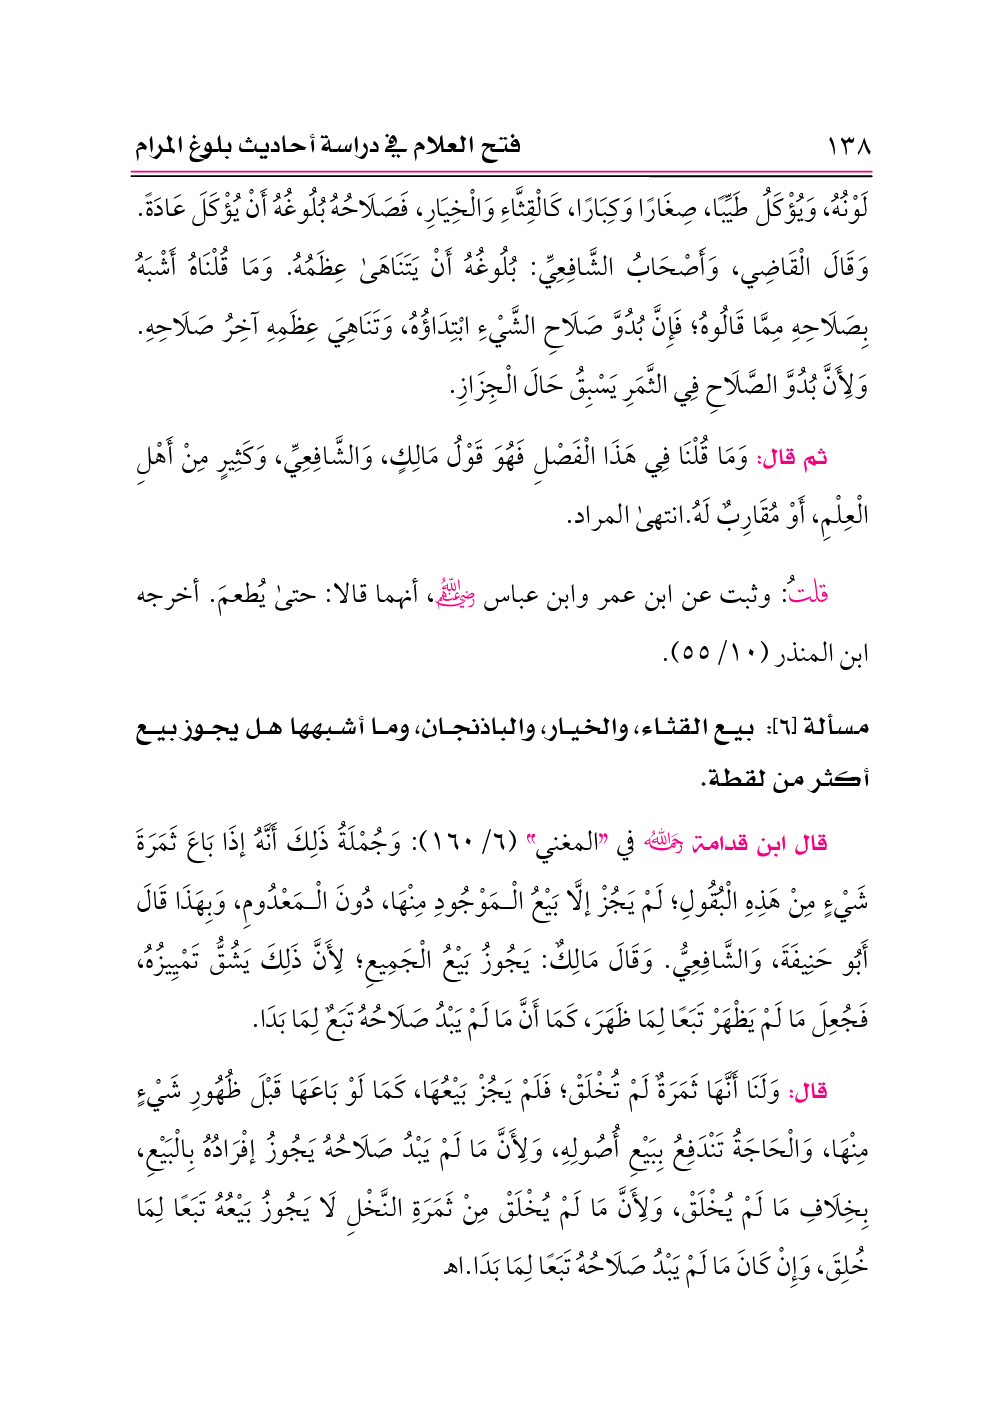 ١٣٨ فتح العلام في دراسة أحاديث بلوغ المرام
لَوْنُهُ، وَيُؤْكَلُ طَيِّبًا، صِغَارًا وَكِبَارًا، كَالْقِثَّاءِ وَالْخِيَارِ، فَصَلَاحُهُ بُلُوغُهُ أَنْ يُؤْكَلَ عَادَةً.
وَقَالَ الْقَاضِي، وَأَصْحَابُ الشَّافِعِيِّ: بُلُوغُهُ أَنْ يَتَنَاهَىٰ عِظَمُهُ. وَمَا قُلْنَاهُ أَشْبَهُ
بِصَلَاحِهِ مِمَّا قَالُوهُ؛ فَإِنَّ بُدُوَّ صَلَاحِ الشَّيْءِ ابْتِدَاؤُهُ، وَتَنَاهِيَ عِظَمِهِ آخِرُ صَلَاحِهِ.
وَلِأَنَّ بُدُوَّ الصَّلَاحِ فِي الثَّمَرِ يَسْبِقُ حَالَ الْجِزَازِ.
ثم قال: وَمَا قُلْنَا فِي هَذَا الْفَصْلِ فَهُوَ قَوْلُ مَالِكٍ، وَالشَّافِعِيِّ، وَكَثِيرٍ مِنْ أَهْلِ
الْعِلْمِ، أَوْ مُقَارِبٌ لَهُ.انتهىٰ المراد.
قلتُ: وثبت عن ابن عمر وابن عباس رضي الله عنهم، أنهما قالا: حتىٰ يُطعمَ. أخرجه
ابن المنذر (١٠/ ٥٥).
مسألة [٦]: بيـع القثـاء، والخيـار، والباذنجـان، ومـا أشـبهها هـل يجـوز بيـع
أكثر من لقطة.
قال ابن قدامة رحمه الله في "المغني" (٦/ ١٦٠): وَجُمْلَةُ ذَلِكَ أَنَّهُ إذَا بَاعَ ثَمَرَةَ
شَيْءٍ مِنْ هَذِهِ الْبُقُولِ؛ لَمْ يَجُزْ إلَّا بَيْعُ الْـمَوْجُودِ مِنْهَا، دُونَ الْـمَعْدُومِ، وَبِهَذَا قَالَ
أَبُو حَنِيفَةَ، وَالشَّافِعِيُّ. وَقَالَ مَالِكٌ: يَجُوزُ بَيْعُ الْجَمِيعِ؛ لِأَنَّ ذَلِكَ يَشُقُّ تَمْيِيزُهُ،
فَجُعِلَ مَا لَمْ يَظْهَرْ تَبَعًا لِمَا ظَهَرَ، كَمَا أَنَّ مَا لَمْ يَبْدُ صَلَاحُهُ تَبَعٌ لِمَا بَدَا.
قال: وَلَنَا أَنَّهَا ثَمَرَةٌ لَمْ تُخْلَقْ؛ فَلَمْ يَجُزْ بَيْعُهَا، كَمَا لَوْ بَاعَهَا قَبْلَ ظُهُورِ شَيْءٍ
مِنْهَا، وَالْحَاجَةُ تَنْدَفِعُ بِبَيْعِ أُصُولِهِ، وَلِأَنَّ مَا لَمْ يَبْدُ صَلَاحُهُ يَجُوزُ إفْرَادُهُ بِالْبَيْعِ،
بِخِلَافِ مَا لَمْ يُخْلَقْ، وَلِأَنَّ مَا لَمْ يُخْلَقْ مِنْ ثَمَرَةِ النَّخْلِ لَا يَجُوزُ بَيْعُهُ تَبَعًا لِمَا
خُلِقَ، وَإِنْ كَانَ مَا لَمْ يَبْدُ صَلَاحُهُ تَبَعًا لِمَا بَدَا.اهـ